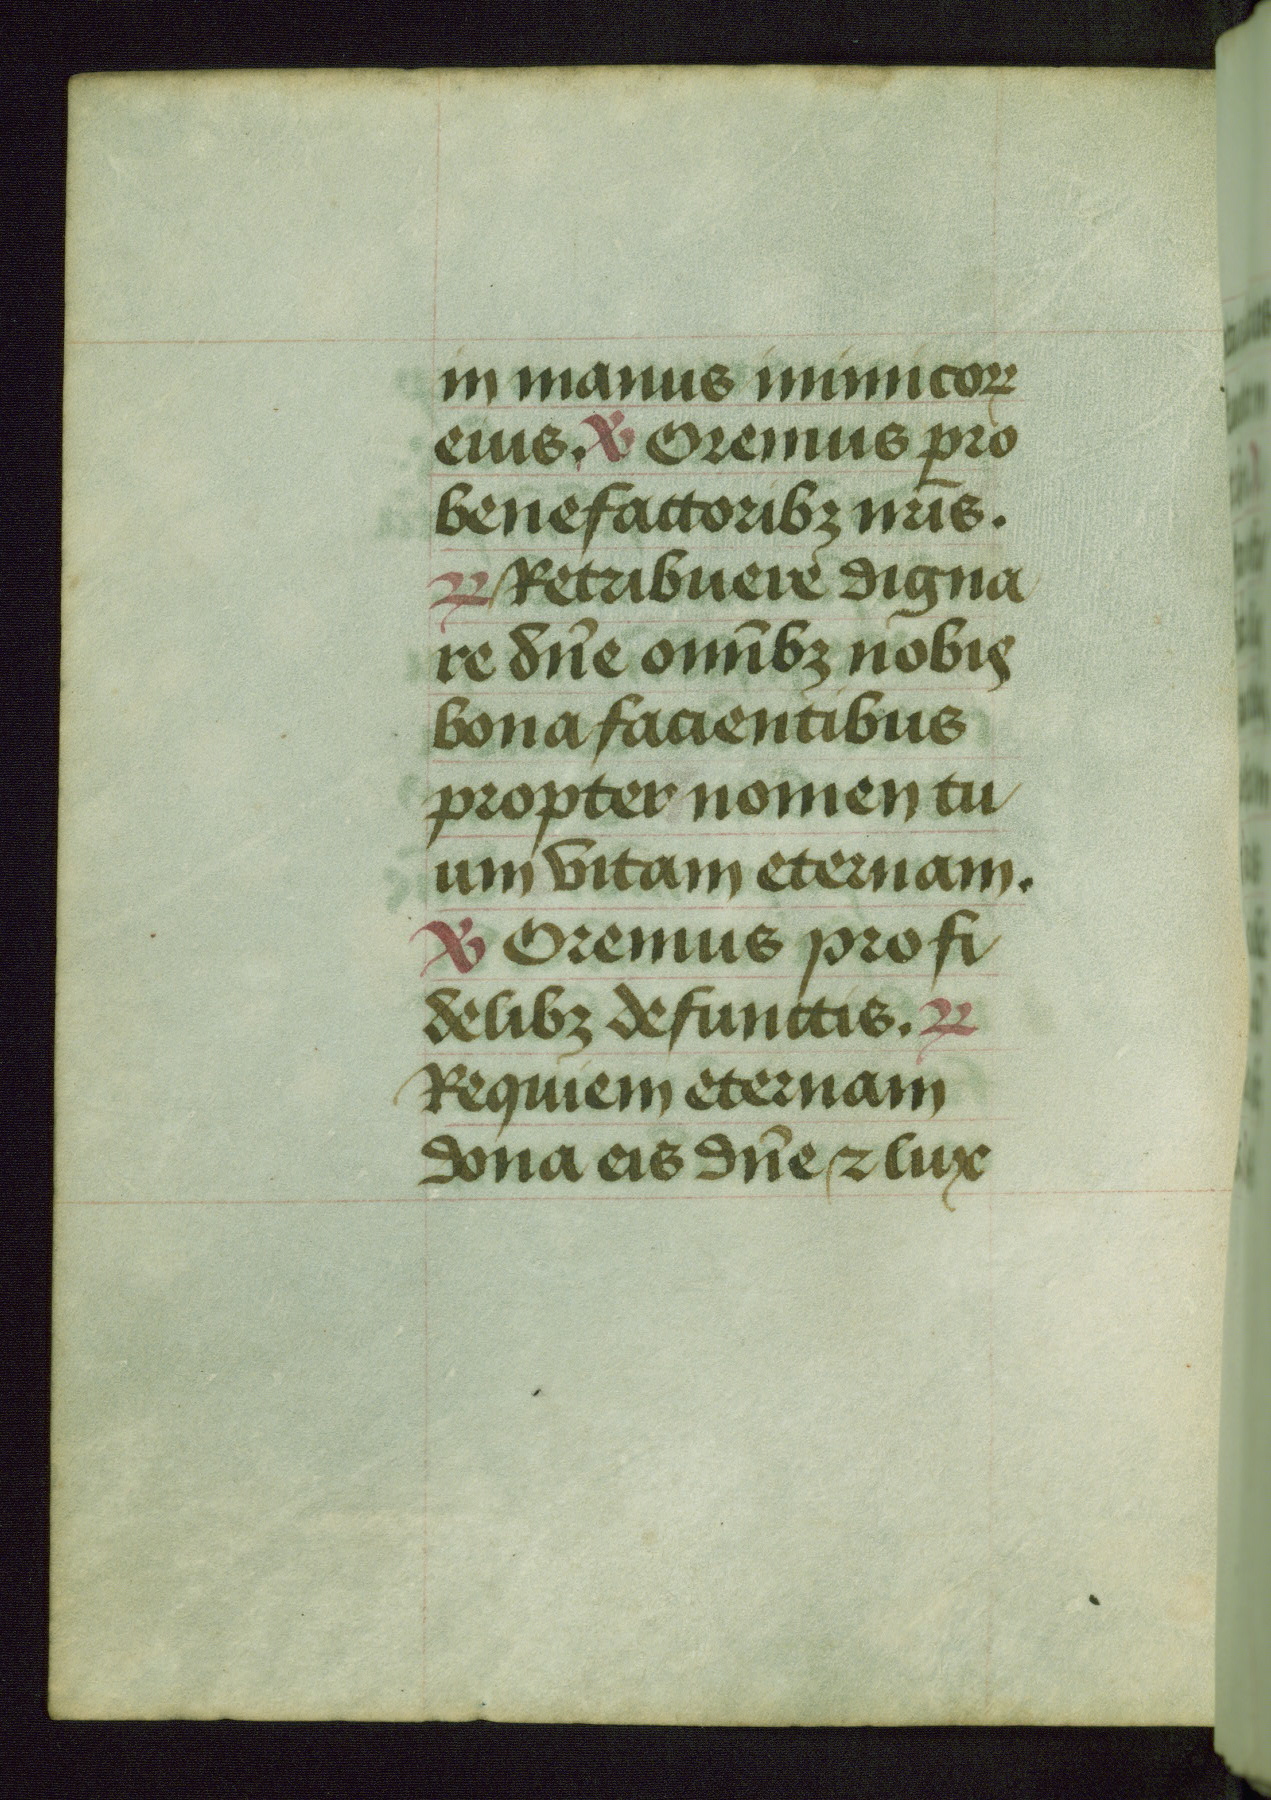 in manus inimicoꝝ
eius. ℣ Oremus pro
benefactoribꝫ nr̄is.
℟ Retribuere digna
re dn̄e omn̄ibꝫ nobis
bona facientibus
propter nomen tu
um vitam eternam.
℣ Oremus pro fi
delibꝫ defunctis. ℟
Requiem eternam
dona eis dn̄e ⁊ lux